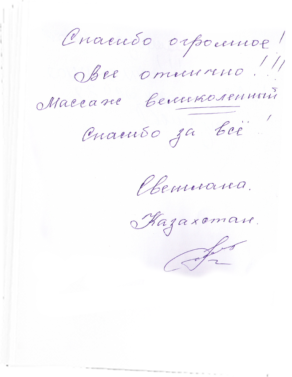 Спасибо огромное!
Все отлично!!!
Массаж великоленный
Спасибо за всё!
Светлана.
Казахстан.